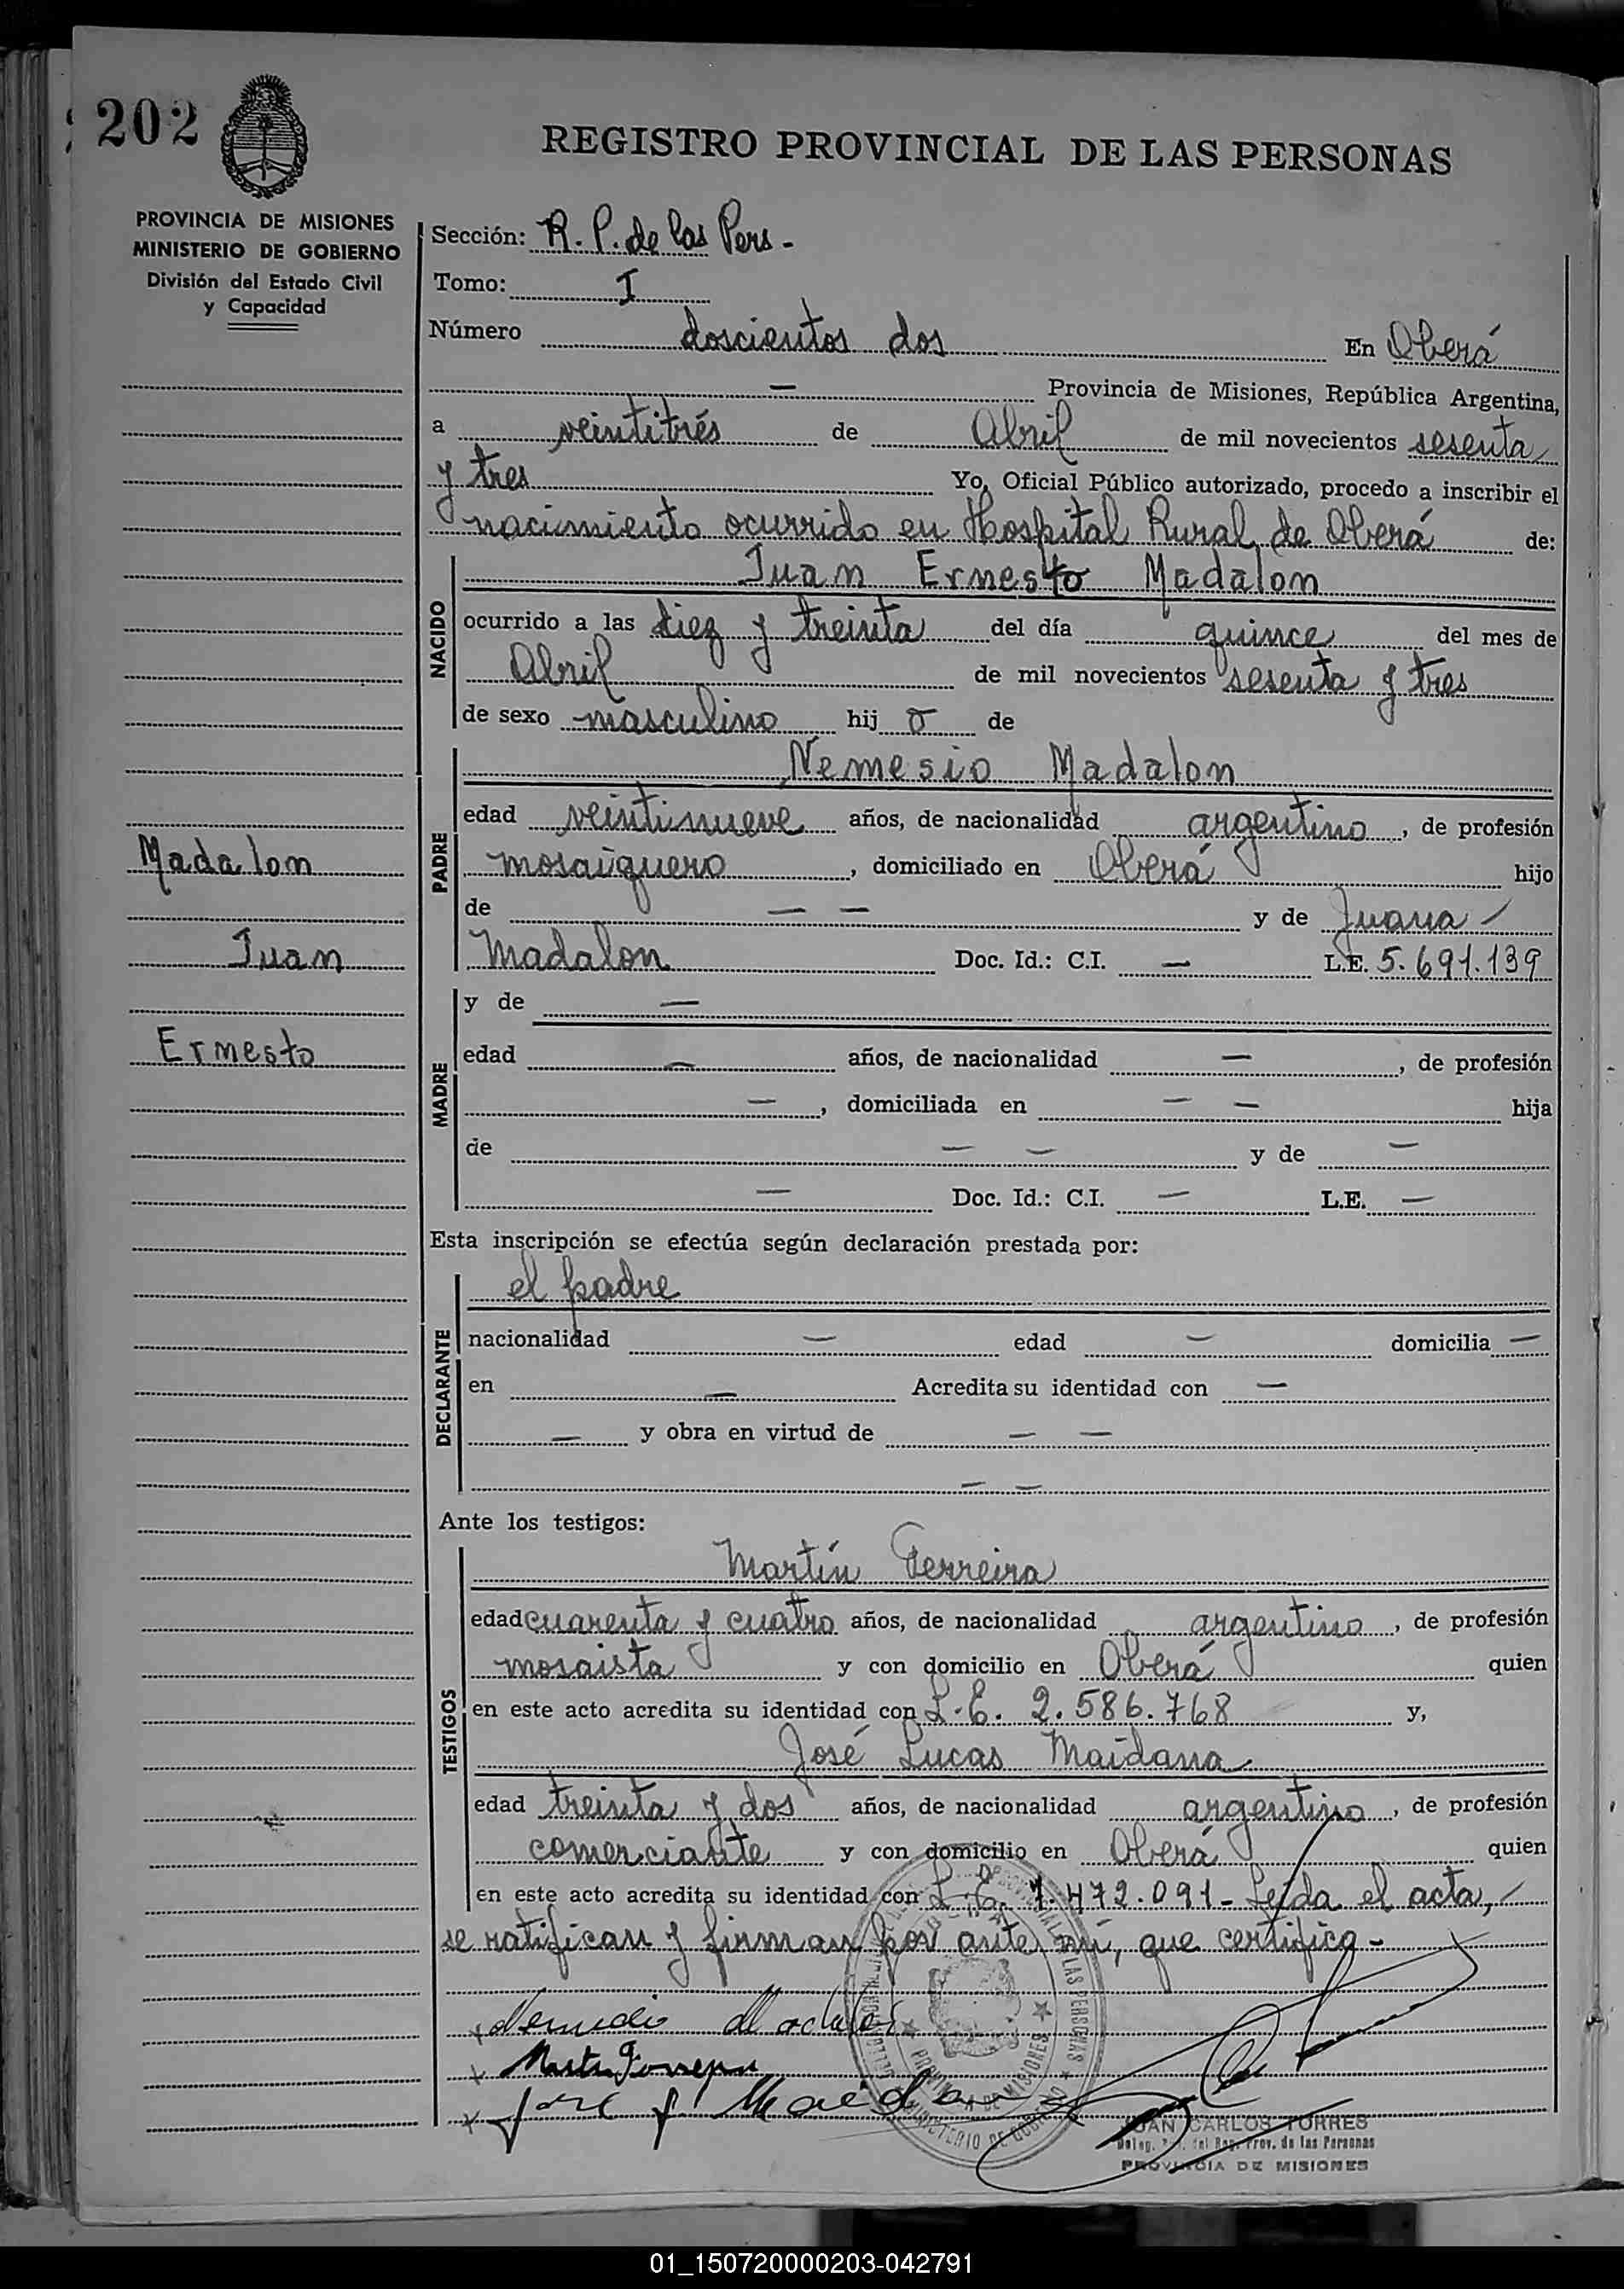 202
REGISTRO PROVINCIAL DE LAS PERSONAS
PROVINCIA DE MISIONES
MINISTERIO DE GOBIERNO
División del Estado Civil
y Capacidad
Sección: R. P. de las Pers -
Tomo: I
Número doscientos dos En Oberá
— Provincia de Misiones, República Argentina,
a veintitrés de Abril de mil novecientos sesenta
y tres Yo, Oficial Público autorizado, procedo a inscribir el
nacimiento ocurrido en Hospital Rural de Oberá de:
NACIDO
Juan Ernesto Madalon
ocurrido a las diez y treinta del día quince del mes de
Abril de mil novecientos sesenta y tres
de sexo masculino hij o de
PADRE
Nemesio Madalon
edad veintinueve años, de nacionalidad argentino, de profesión
mosaiquero, domiciliado en Oberá hijo
de — — y de Juana
Madalon Doc. Id.: C.I. — L.E. 5.691.139
Madalon
Juan
Ernesto
MADRE
y de —
edad — años, de nacionalidad —, de profesión
—, domiciliada en — — hija
de — — y de —
— Doc. Id.: C.I. — L.E. —
Esta inscripción se efectúa según declaración prestada por:
DECLARANTE
el padre
nacionalidad — edad — domicilia —
en — Acredita su identidad con —
— y obra en virtud de — —
— —
Ante los testigos:
TESTIGOS
Martín Ferreira
edad cuarenta y cuatro años, de nacionalidad argentino, de profesión
mosaista y con domicilio en Oberá quien
en este acto acredita su identidad con L.E. 2.586.768 y,
José Lucas Maidana
edad treinta y dos años, de nacionalidad argentino, de profesión
comerciante y con domicilio en Oberá quien
en este acto acredita su identidad con L.E. 1.472.091 - Leída el acta,
se ratifican y firman por ante mí, que certifico -
JUAN CARLOS TORRES
Prov. de las Personas
PROVINCIA DE MISIONES
01_150720000203-042791